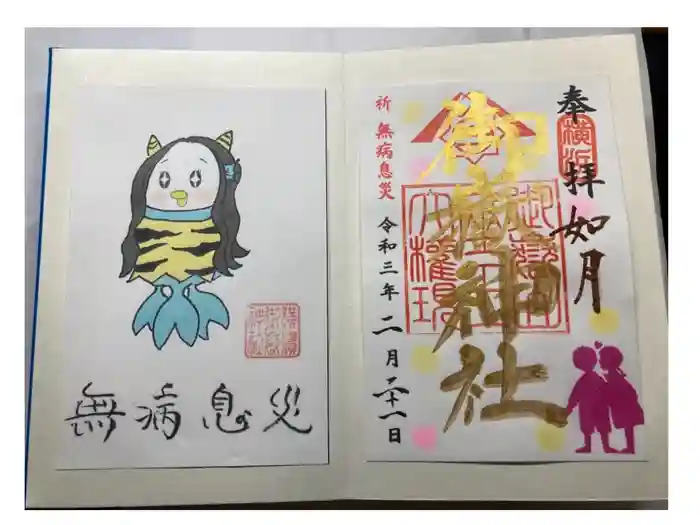 奉拝
如月
横浜
御嶽神社
祈 無病息災
令和三年二月二十一日
無病息災